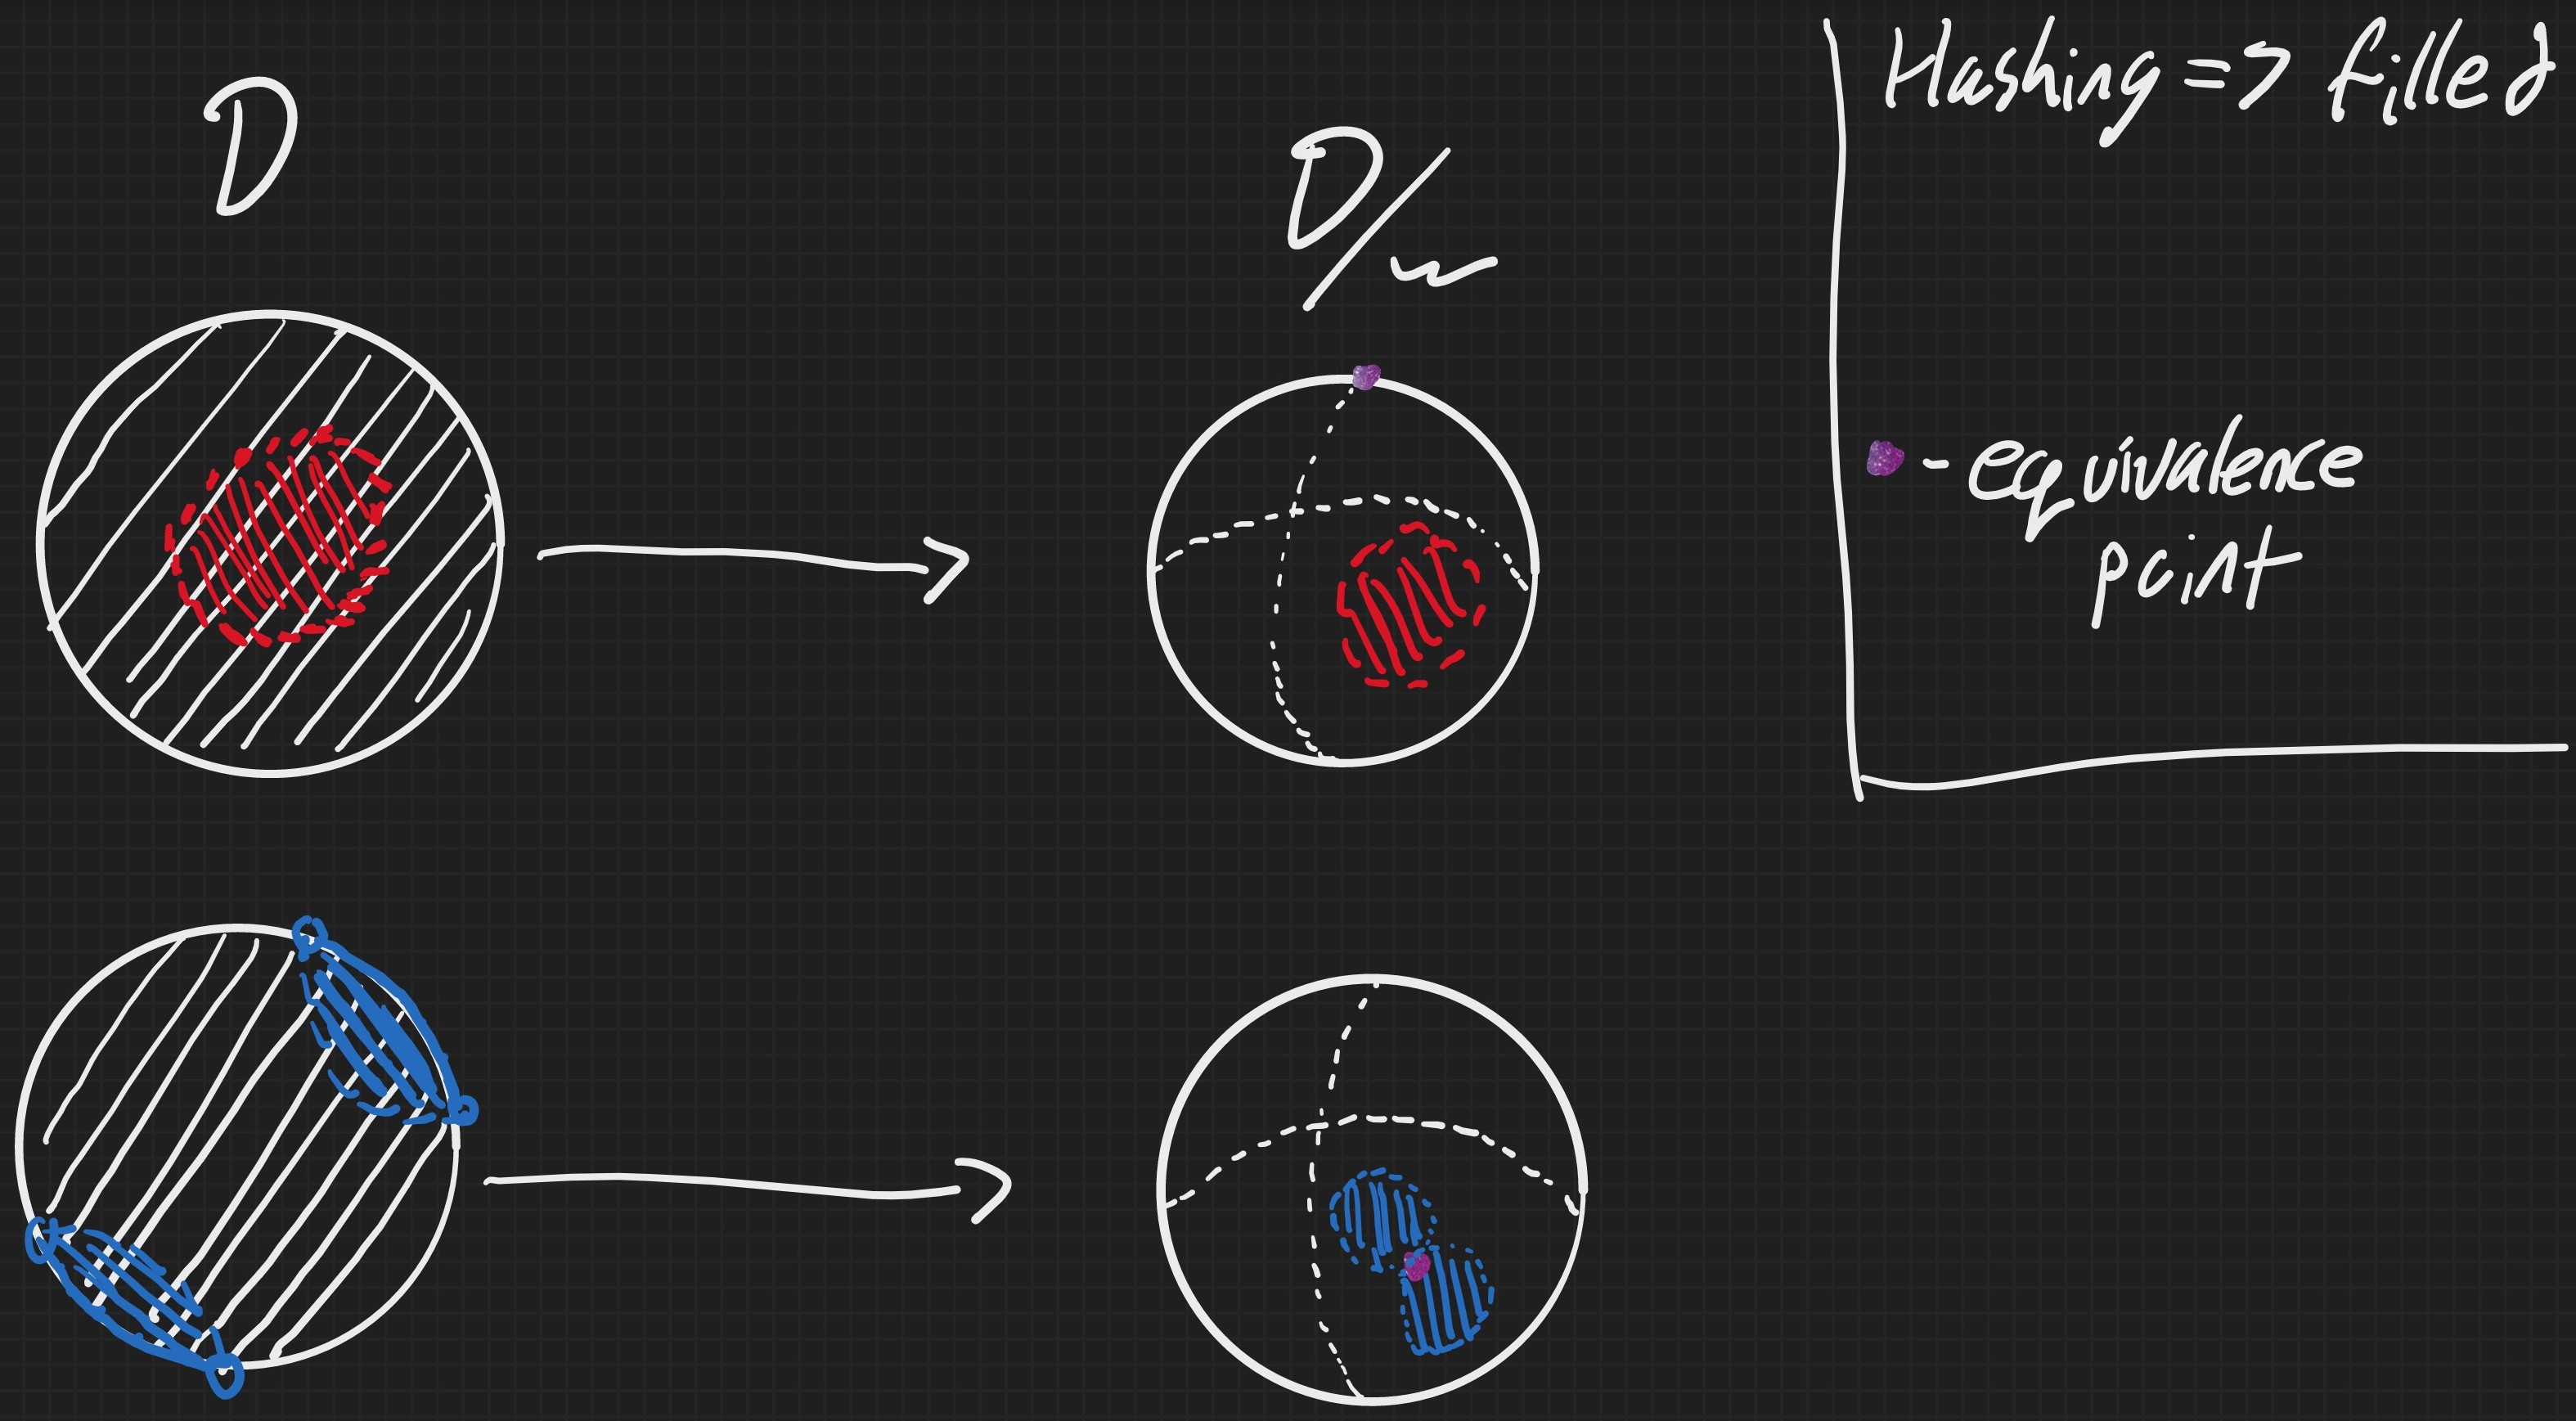 D
D/~
Hashing => filled
- equivalence
point